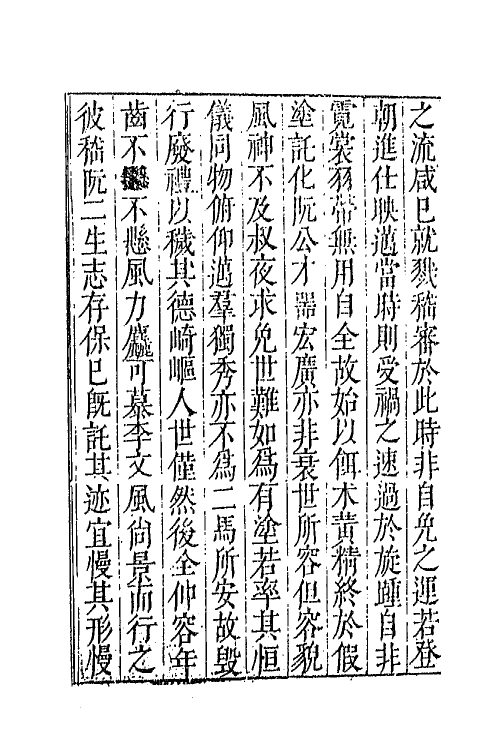 之流咸已就戮嵇審於此時非自免之運若登
朝進仕映邁當時則受禍之速過於旋踵自非
霓裳羽帶無用自全故始以餌木黃精終於假
塗託化阮公才器宏廣亦非衰世所容但容貌
風神不及叔夜求免世難如爲有塗若率其恒
儀同物俯仰邁羣獨秀亦不爲二馬所安故毀
行廢禮以穢其德崎嶇人世僅然後全仲容年
齒不懸不懸風力麤可慕李文風尙景而行之
彼嵇阮二生志存保已旣託其迹宜慢其形慢